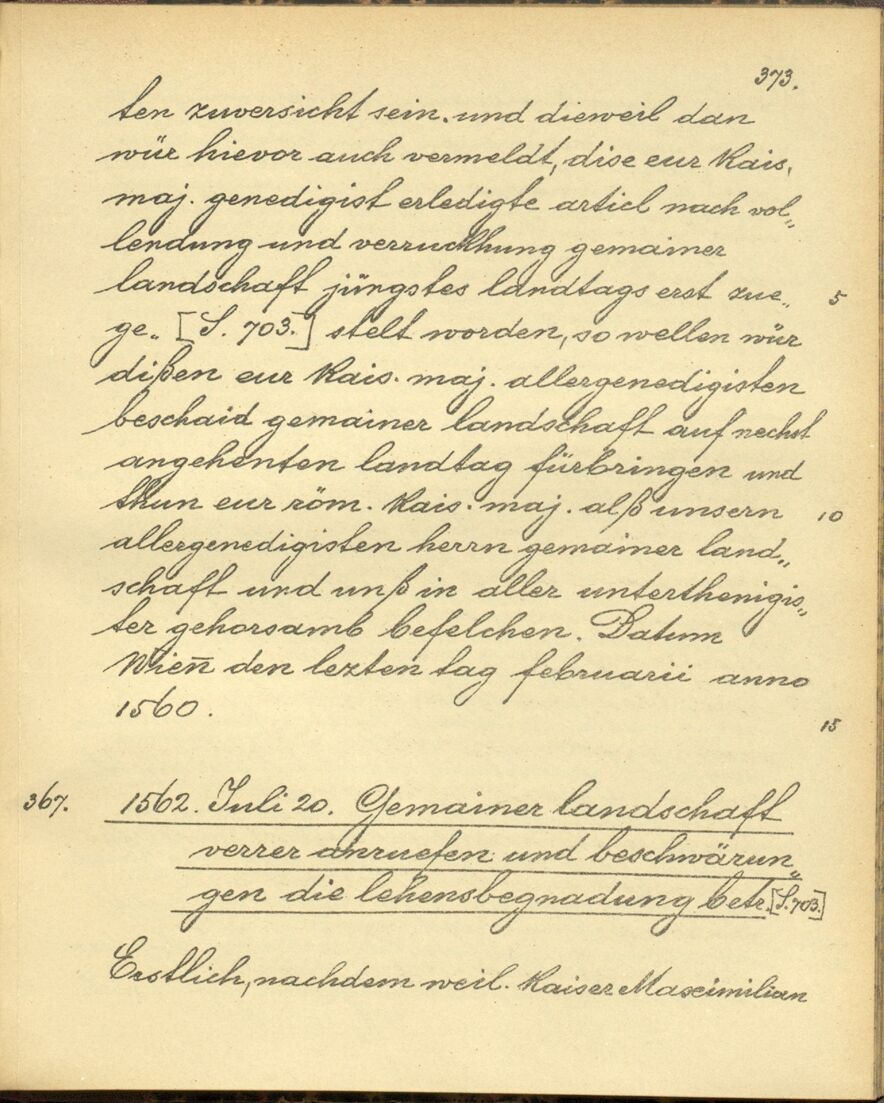 373.
ten zuversicht sein. und dieweil dan
wür hievor auch vermeldt, dise eur kais.
maj. genedigist erledigte articl nach vol„
lendung und verruckhung gemainer
landschaft jüngstes landtags erst zue„ 5
ge„ [S. 703.] stelt worden, so wellen wür
dißen eur kais. maj. allergenedigisten
beschaid gemainer landschaft auf nechst
angehenten landtag fürbringen und
thun eur röm. kais. maj. alß unsern 10
allergenedigisten herrn gemainer land„
schaft und unß in aller unterthenigis„
ter gehorsamb befelchen. Datum
Wien̄ den lezten tag februarii anno
1560. 15
367. 1562. Juli 20. Gemainer landschaft
verrer anruefen und beschwärun„
gen die lehensbegnadung betr. [S. 703.]
Erstlich, nachdem weil. Kaiser Maximilian